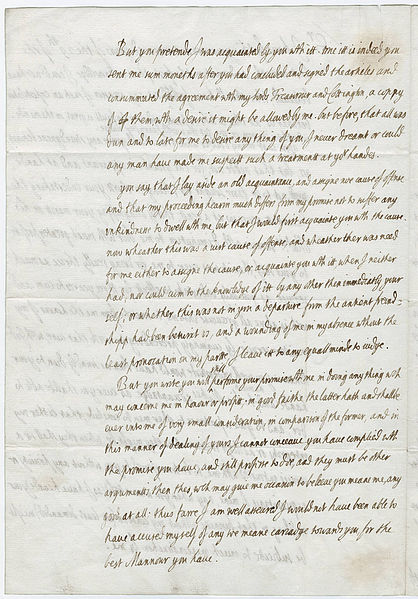 But you pretende I was acquainted by you wth itt. true itt is indeed you
sent me sum moneths after you had concluded and signed the articles and
consummated the agreement with my lords Treasurour and Cottington, a coppy
of them with a desire it might be allowed by me. but before, that all was
dun and to late for me to desire any thing of you, I never dreamt or could
any man have made me suspect such a treatment at yor handes.
you say that I lay aside an old acquaintance, and assigne noe cause of offence
and that my proceeding hearin much differs from my promise not to suffer any
unkindness to dwell wth me, but that I would first acquainte you wth the cause.
now whearther this was a iust cause of offence, and wheather ther was need
for me either to assigne the cause, or acquainte you wth itt when I neither
had, nor could cum to the knowledge of itt by any other then immediatly your
self; or whether this was not in you a departure from the antient freind=
shipp had ben betwixt us, and a wounding of me in my absence without the
least provocation on my parte, I leave itt to any equall minde to iudge.
But you write you will still performe your promise wth me in doing any thing wch
may concerne me in honour or profitt. in good faithe the latter hath and shalbe
ever unto me of very small consideration, in comparison of the former, and in
this manner of dealing of yours I cannot conceave you have complied with
the promise you have, and still profess to doe, and they must be other
arguments then thes, wch may give me occasion to beleeve you meane me, any
good at all: thus farre I am well assured I would not have been able to
have accused my self of any such meane carradge towards you, for the
best Mannour you have.